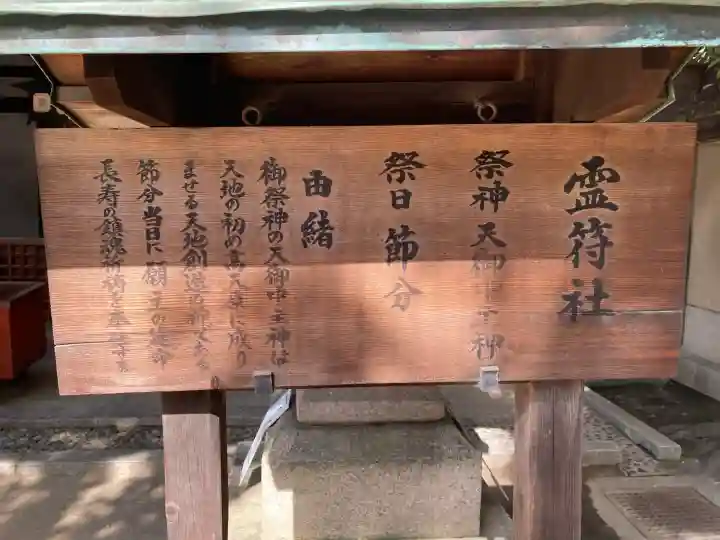 霊符社
祭神 天御中主神
祭日 節分
由緒
御祭神の天御中主神は
天地の初め高天原に成り
ませる天地創造の神である
節分当日に願主の延命
長寿の鎮魂祈祷を奉修する